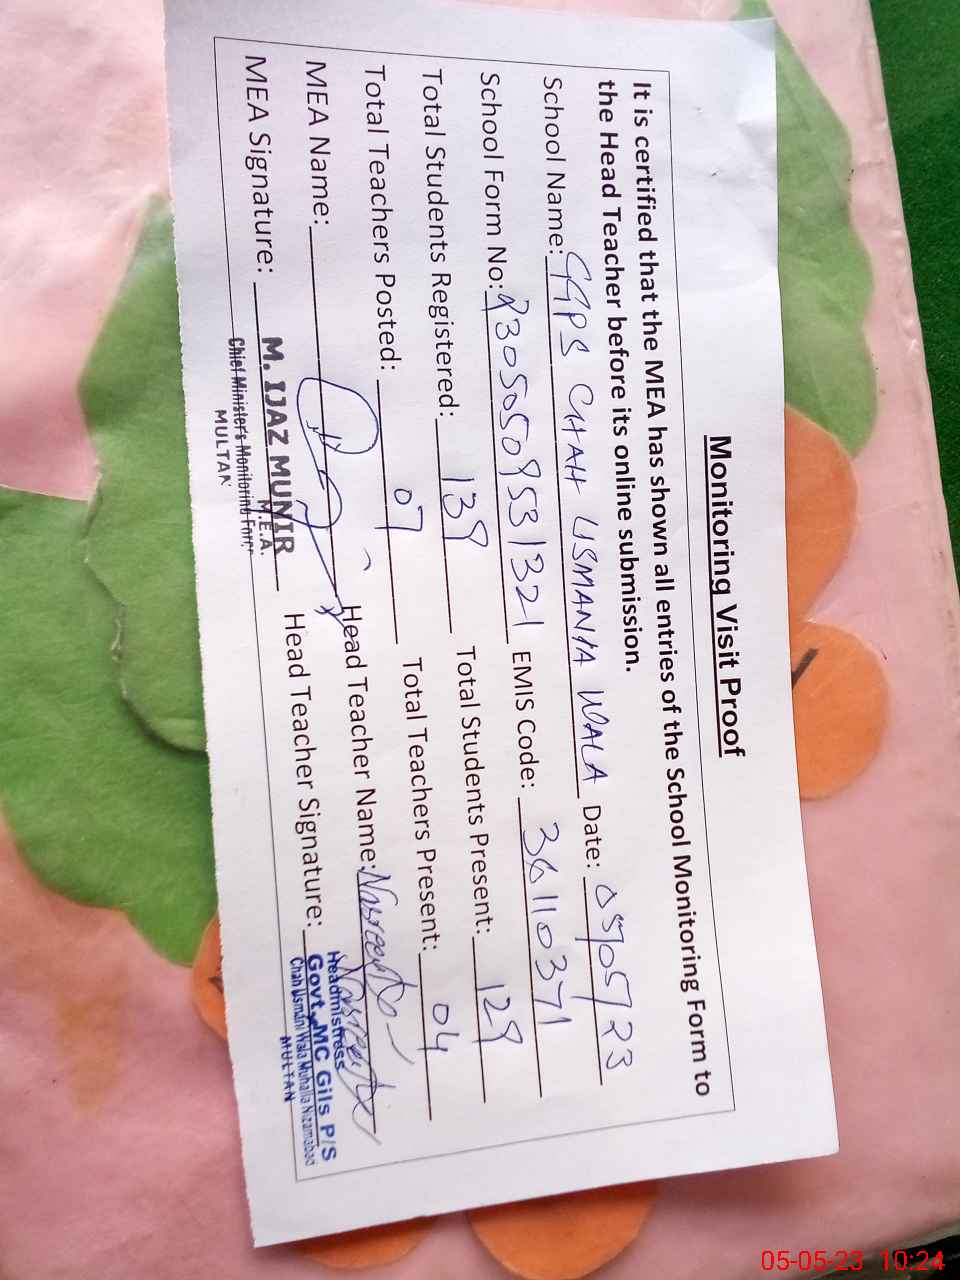 Monitoring Visit Proof
It is certified that the MEA has shown all entries of the School Monitoring Form to
the Head Teacher before its online submission.
School Name: GGPS CHAH USMANIA WALA Date: 05/05/23
School Form No: 23050509531321 EMIS Code: 36110371
Total Students Registered: 139 Total Students Present: 129
Total Teachers Posted: 07 Total Teachers Present: 04
MEA Name: Head Teacher Name: Nasreen
MEA Signature: Head Teacher Signature:
M. IJAZ MUNIR
M.E.A.
Chief Minister's Monitoring Force
MULTAN
Headmistress
Govt. MC Gils P/S
Chah Usmani Wala Muhalla Nizamabad
MULTAN
05-05-23 10:24